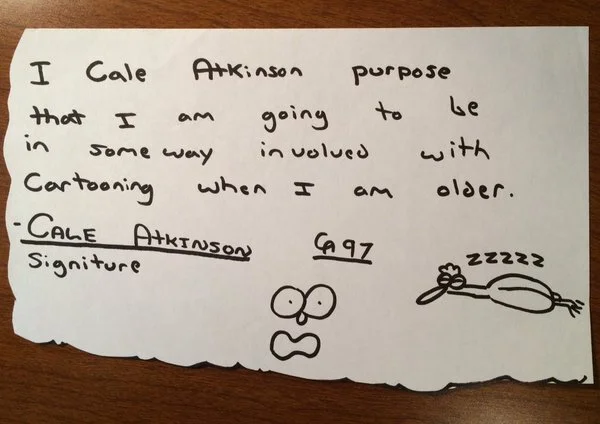 I Cale Atkinson purpose
that I am going to be
in some way involved with
Cartooning when I am older.
- CALE ATKINSON CA 97
Signiture
zzzzz